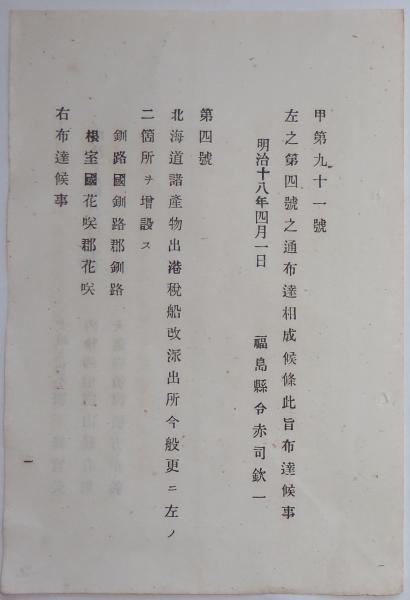 甲第九十一號
左之第四號之通布達相成候條此旨布達候事
明治十八年四月一日　福島縣令赤司欽一
第四號
北海道諸產物出港稅船改派出所今般更ニ左ノ
二箇所ヲ增設ス
釧路國釧路郡釧路
根室國花咲郡花咲
右布達候事
一